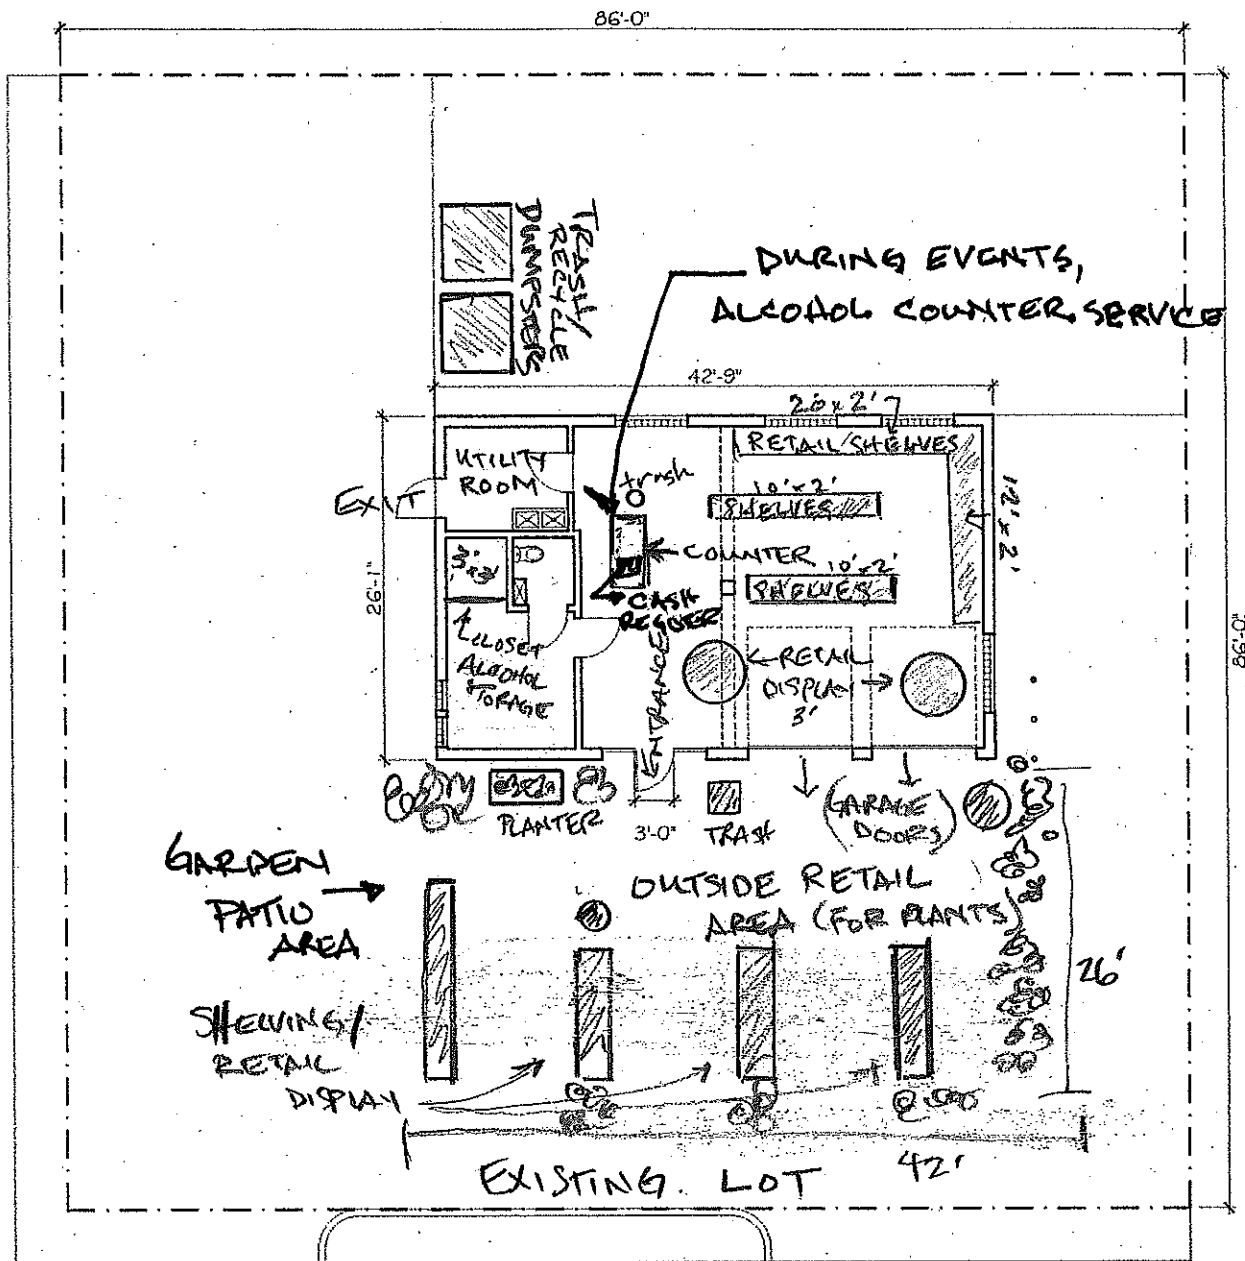 86'-0"
TRASH/
RECYCLE
DUMPSTERS
DURING EVENTS,
ALCOHOL COUNTER SERVICE
42'-9"
20 x 2'
RETAIL/SHELVES
UTILITY
ROOM
trash
10' x 2'
SHELVES
EXIT
12' x 2'
COUNTER
10' x 2'
SHELVES
3' x 3'
26'-1"
CASH
REGISTER
CLOSET
ALCOHOL
STORAGE
ENTRANCE
RETAIL
DISPLAY
3'
86'-0"
PLANTER
3'-0"
TRASH
(GARAGE
DOORS)
GARDEN
PATIO
AREA
OUTSIDE RETAIL
AREA (FOR PLANTS)
26'
SHELVING/
RETAIL
DISPLAY
42'
EXISTING LOT